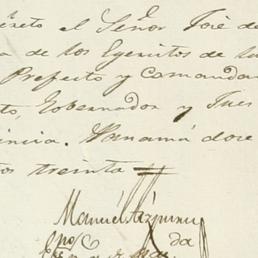 creto el Señor José de
a de los Egercitos de la
Prefecto y Comandan
to, Gobernador y Jues
incia. Panamá doce
tos treinta
Manuel